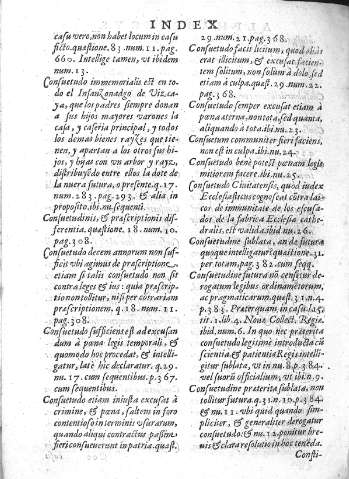 INDEX
casu vero, non habet locum in casu
ficto. quæstione. 83. num. 11. pag.
660. Intellige tamen, vt ibidem
num. 13.
Consuetudo immemorialis est en to-
do el Infanzonadgo de Viz-
caya, que los padres siempre donan
a sus hijos mayores varones la
casa, y caseria principal, y todos
los demas bienes rayzes que tie-
nen, y apartan a los otros sus hi-
jos, y hijas con vn arbol y rayz,
distribuyendo entre ellos la dote de
la nuera futura, o presente. q. 17.
num. 283. pag. 293. & alia in
proposito. ibi. sequenti.
Consuetudinis, & præscriptionis dif-
ferentia. quæstione. 18. num. 10.
pag. 308.
Consuetudo decem annorum non suf-
ficit vbi agimus de præscriptione,
etiam si talis consuetudo non sit
contra leges & ius: quia præscrip-
tionon tollitur, nisi per contrariam
præscriptionem. q. 18. num. 11.
pag. 308.
Consuetudo sufficiens est ad excusan
dum à pœna legis temporali, &
quomodo hoc procedat, & intelli-
gatur, late hic declaratur. q. 29.
nu. 17. cum sequentibus. p. 367.
cum sequentibus.
Consuetudo etiam iniusta excusat à
crimine, & pœna, saltem in foro
contentioso in terminis vsurarum,
quando aliqui contractus passim
fieri consueuerunt in patria. quæst.
29. num. 21. pag. 368.
Consuetudo facit licitum, quod aliàs
erat illicitum, & excusat facien-
tem solitum, non solum à dolo, sed
etiam à culpa. quæst. 29. num. 22.
pag. 368.
Consuetudo semper excusat etiam à
pœna æterna, non tota, sed quanta,
aliquando à tota. ibi nu. 23.
Consuetum communiter fieri faciens,
non est in culpa. ibi. nu. 24.
Consuetudo benè potest pœnam legis
mitiorem facere. ibi. nu. 25.
Consuetudo Ciuitatensis, quod iudex
Ecclesiasticus cognoscat contradic-
tor de immunitate de los escusa-
dos de la fabrica Ecclesiæ cathe-
dralis. est valida. ibid. nu. 26.
Consuetudine sublata, an de futura
quoque intelligatur. quæstione. 31.
per totam, pag. 382. cum seqq.
Consuetudine futura nõ censetur de-
rogatum legibus ordinamentorum,
ac pragmaticarum. quæst. 31. n. 4.
p. 383. Præterquam in casu l. 45.
tit. 1. lib. 4. Nouæ Collect. Regiæ.
ibid. num. 6. In quo nec præterita
consuetudo legitimè introducta cũ
scientia, & patientia Regis intelli-
gitur sublata, vt in nu. 8. p. 384.
vel suorũ officialium, vt ibi n. 9.
Consuetudine præterita sublata, non
tollitur futura. q. 31. n. 10. p. 384
& nu. 11. vbi quid quando sim-
pliciter, & generaliter derogatur
consuetudo: & nu. 12. ponitur bre-
uis & clara resolutio in hoc tenẽda.
Consti-